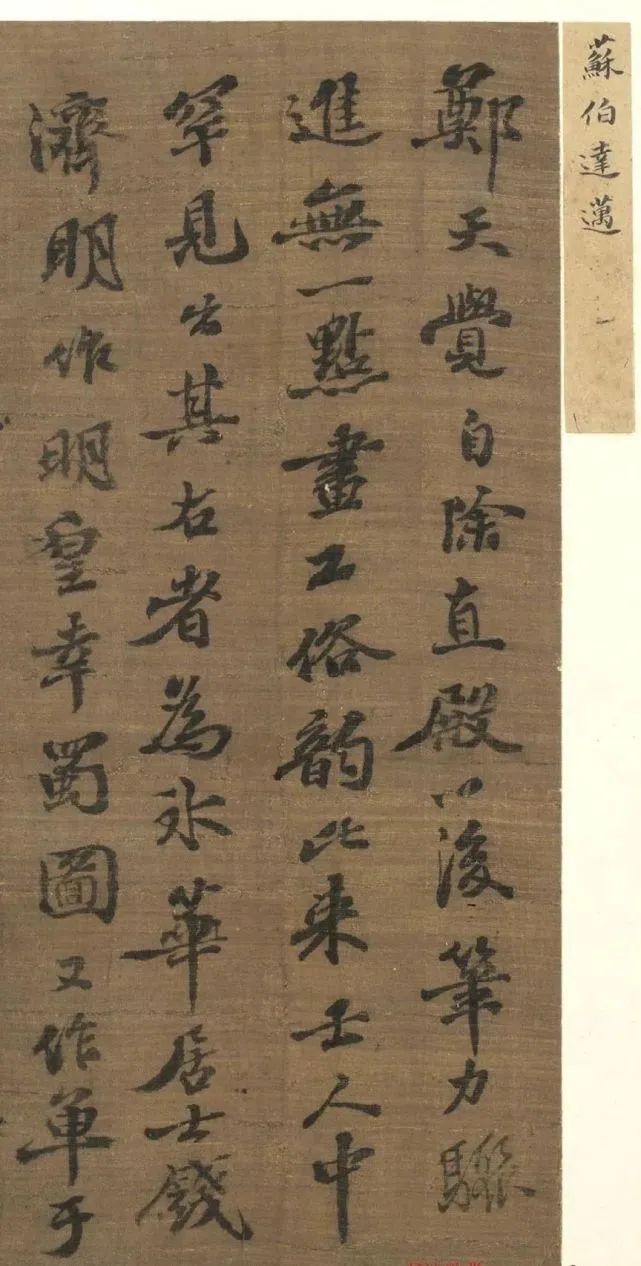 蘇伯達邁 一
鄭天覺自除直殿以後筆力驟
進無一點畫工俗韻比來士人中
罕見出其右者為冰華居士錢
濟明作明皇幸蜀圖又作單于